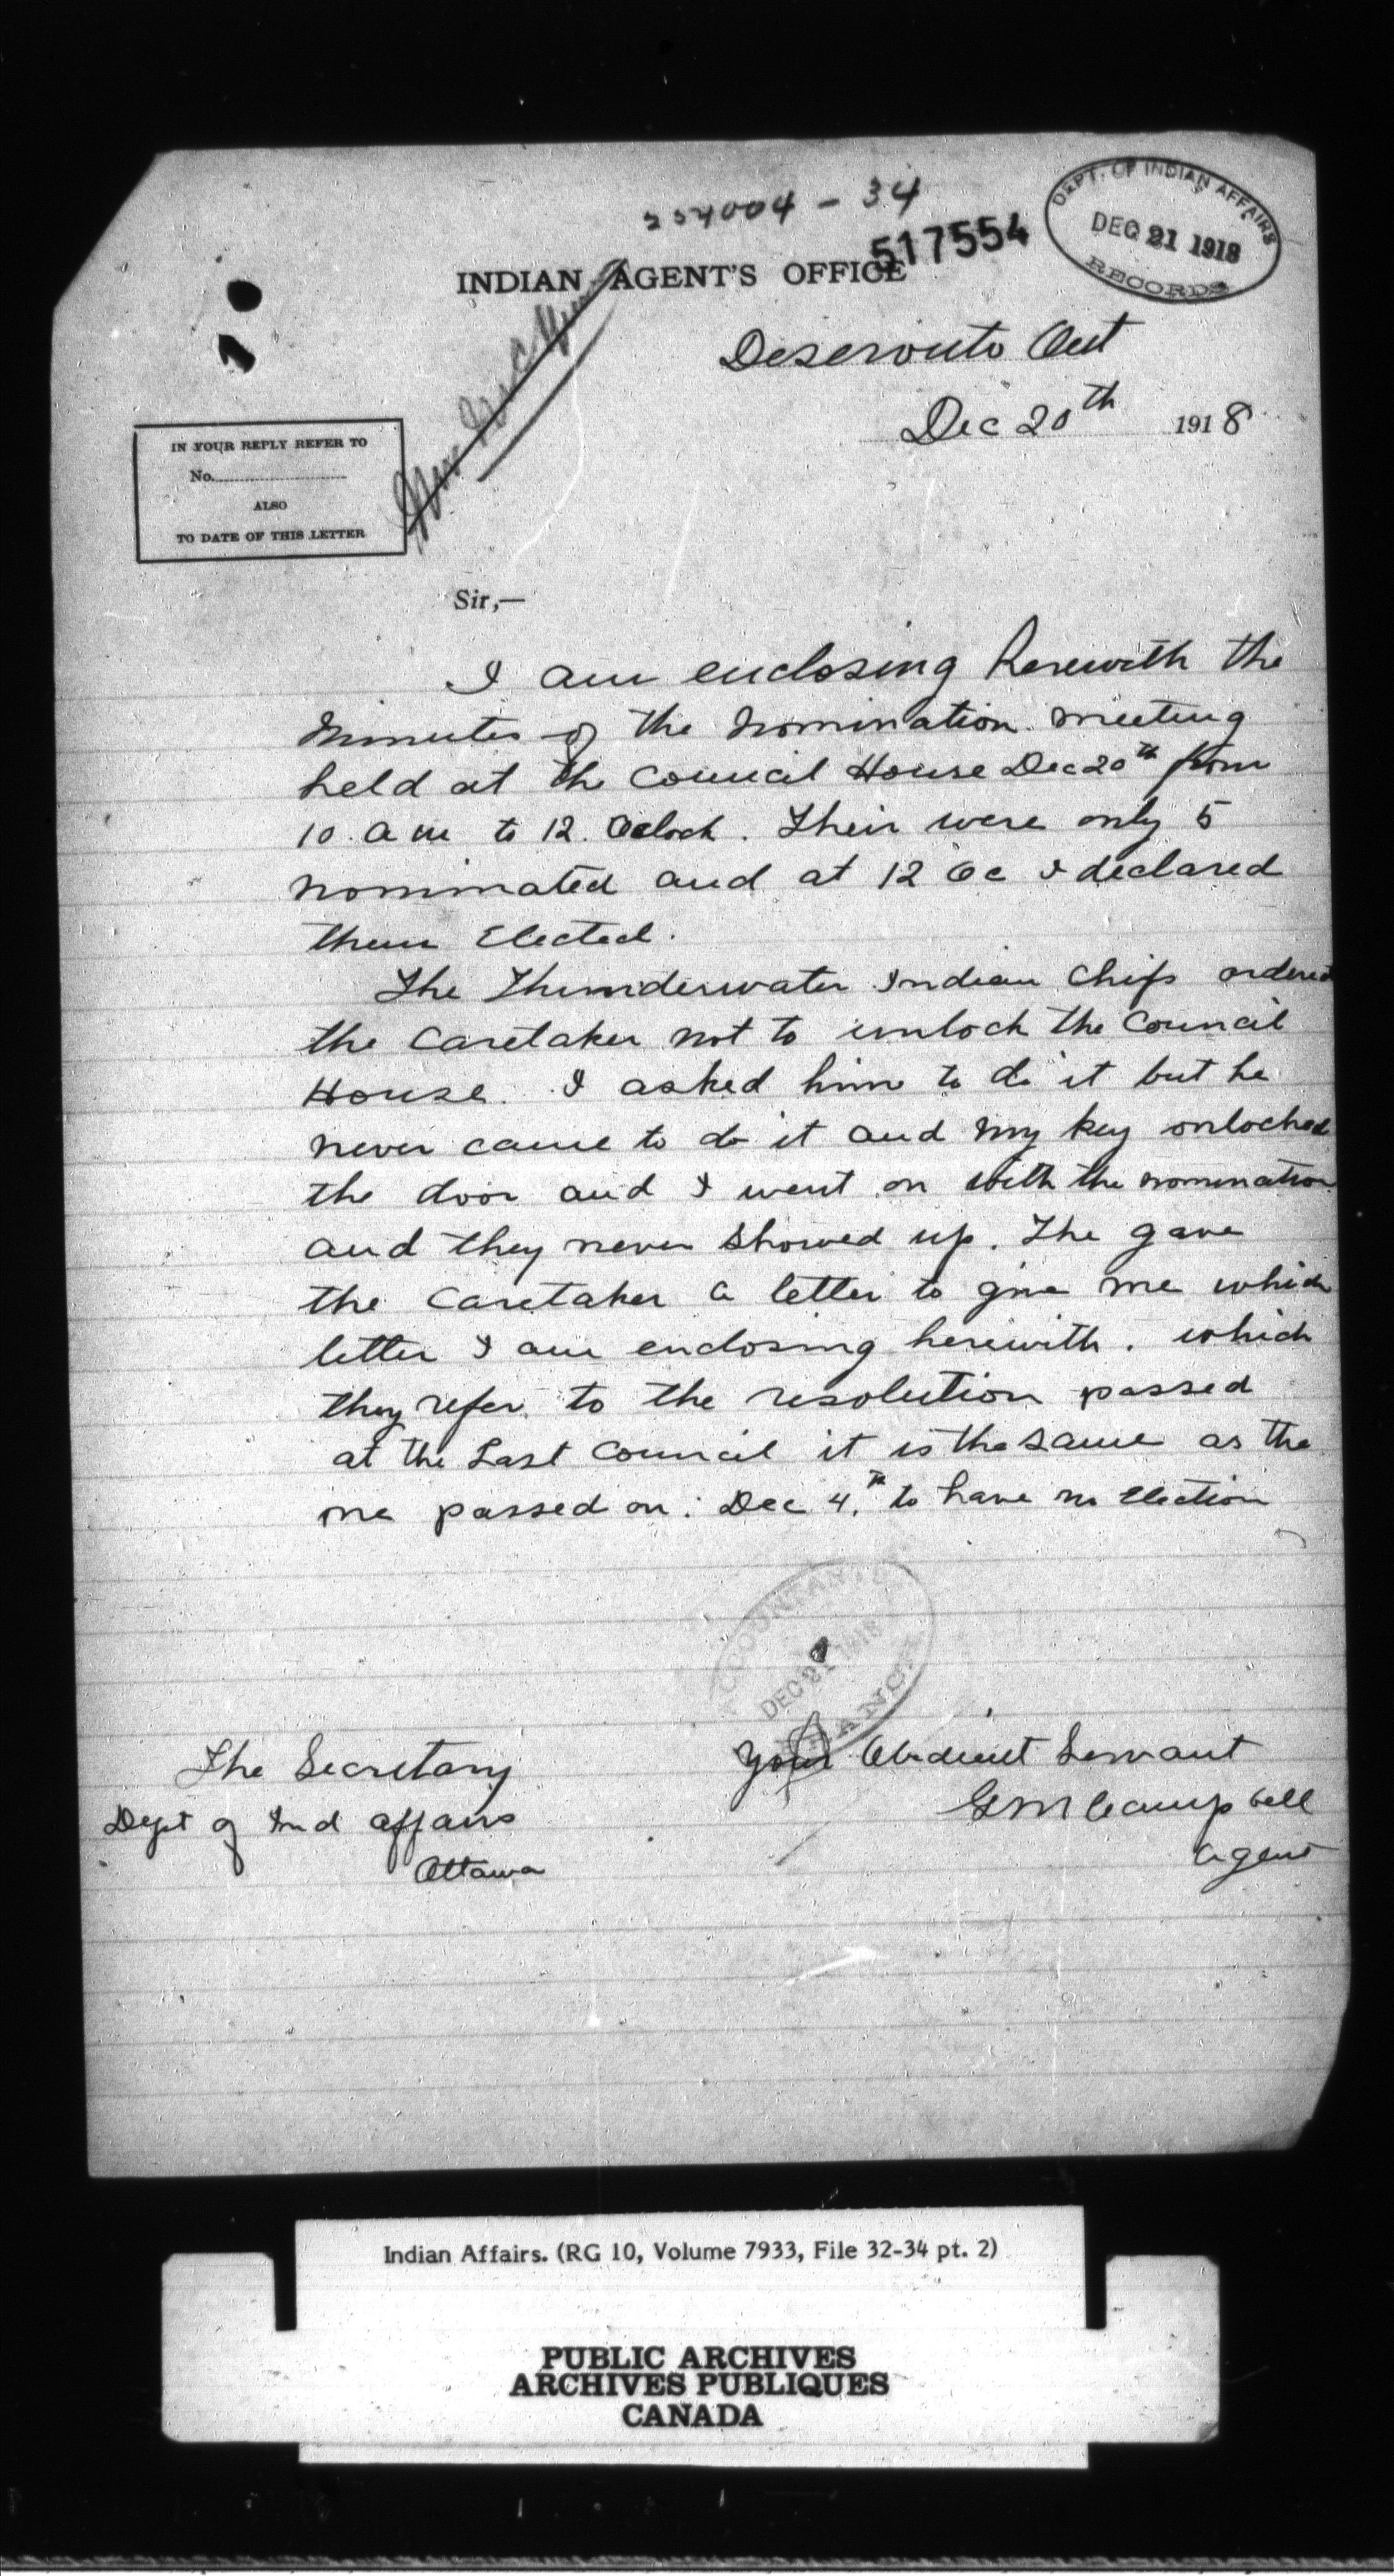 254004 - 34
517554
DEPT. OF INDIAN AFFAIRS
DEC 21 1918
RECORDS
INDIAN AGENT'S OFFICE
Deseronto Ont
Dec 20th 1918
IN YOUR REPLY REFER TO
No.
ALSO
TO DATE OF THIS LETTER
Sir,—
I am enclosing herewith the
Minutes of the nomination meeting
held at the Council House Dec 20th from
10. a m to 12. Oclock. Their were only 5
nominated and at 12 Oc I declared
them Elected.
The Thunderwater Indian Chifs ordered
the Caretaker not to unlock the Council
House. I asked him to do it but he
never came to do it and my key onlocked
the door and I went on with the nomination
and they never showed up. The gave
the Caretaker a letter to give me which
letter I am enclosing herewith. which
they refer to the resolution passed
at the Last Council it is the same as the
one passed on. Dec 4.th to have no Election
ACCOUNTANT'S
DEC 21 1918
BRANCH
Your Obedient Servant
G M Campbell
agent
The Secretary
Dept of Ind affairs
Ottawa
Indian Affairs. (RG 10, Volume 7933, File 32-34 pt. 2)
PUBLIC ARCHIVES
ARCHIVES PUBLIQUES
CANADA